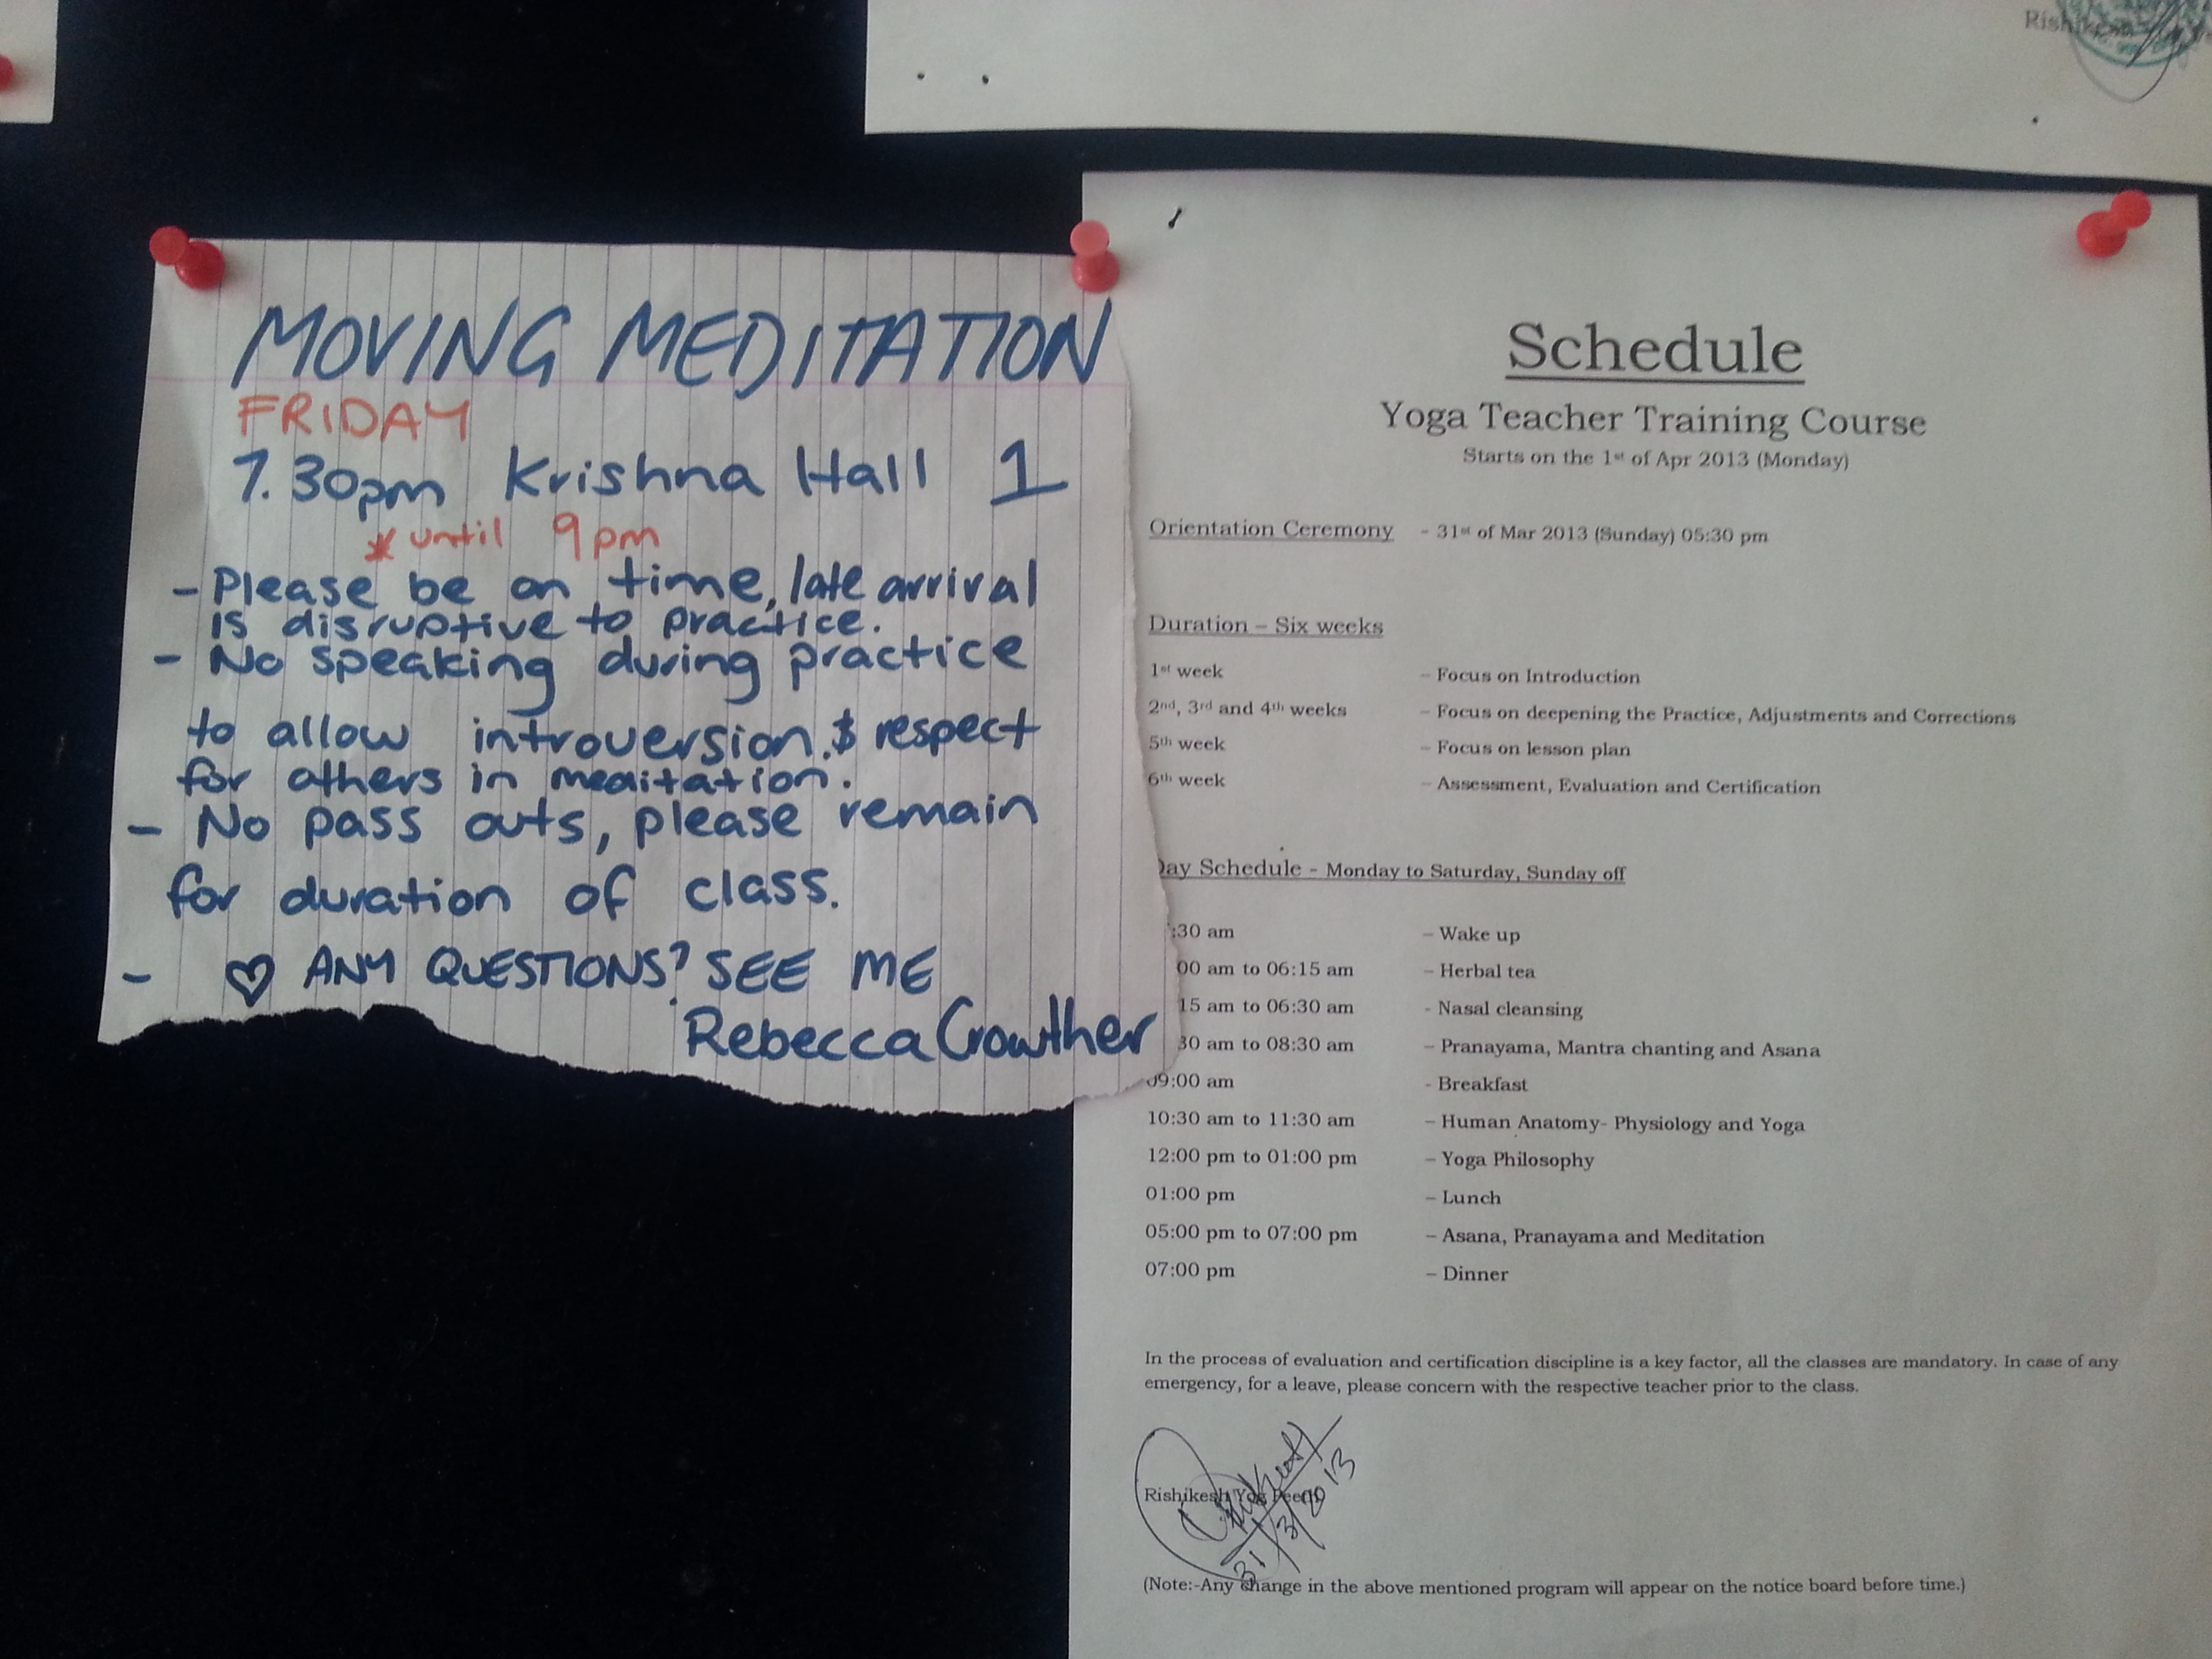 MOVING MEDITATION
FRIDAY
7.30pm Krishna Hall 1
* until 9pm
- Please be on time, late arrival
is disruptive to practice.
- No speaking during practice
to allow introversion & respect
for others in meditation.
- No pass outs, please remain
for duration of class.
- ♡ ANY QUESTIONS? SEE ME
Rebecca Crowther
Schedule
Yoga Teacher Training Course
Starts on the 1st of Apr 2013 (Monday)
Orientation Ceremony - 31st of Mar 2013 (Sunday) 05:30 pm
Duration – Six weeks
1st week – Focus on Introduction
2nd, 3rd and 4th weeks – Focus on deepening the Practice, Adjustments and Corrections
5th week – Focus on lesson plan
6th week – Assessment, Evaluation and Certification
Day Schedule - Monday to Saturday, Sunday off
:30 am – Wake up
00 am to 06:15 am – Herbal tea
15 am to 06:30 am - Nasal cleansing
30 am to 08:30 am – Pranayama, Mantra chanting and Asana
09:00 am - Breakfast
10:30 am to 11:30 am – Human Anatomy- Physiology and Yoga
12:00 pm to 01:00 pm – Yoga Philosophy
01:00 pm – Lunch
05:00 pm to 07:00 pm – Asana, Pranayama and Meditation
07:00 pm – Dinner
In the process of evaluation and certification discipline is a key factor, all the classes are mandatory. In case of any
emergency, for a leave, please concern with the respective teacher prior to the class.
Rishikesh Yog Peeth
31/3/2013
(Note:-Any change in the above mentioned program will appear on the notice board before time.)